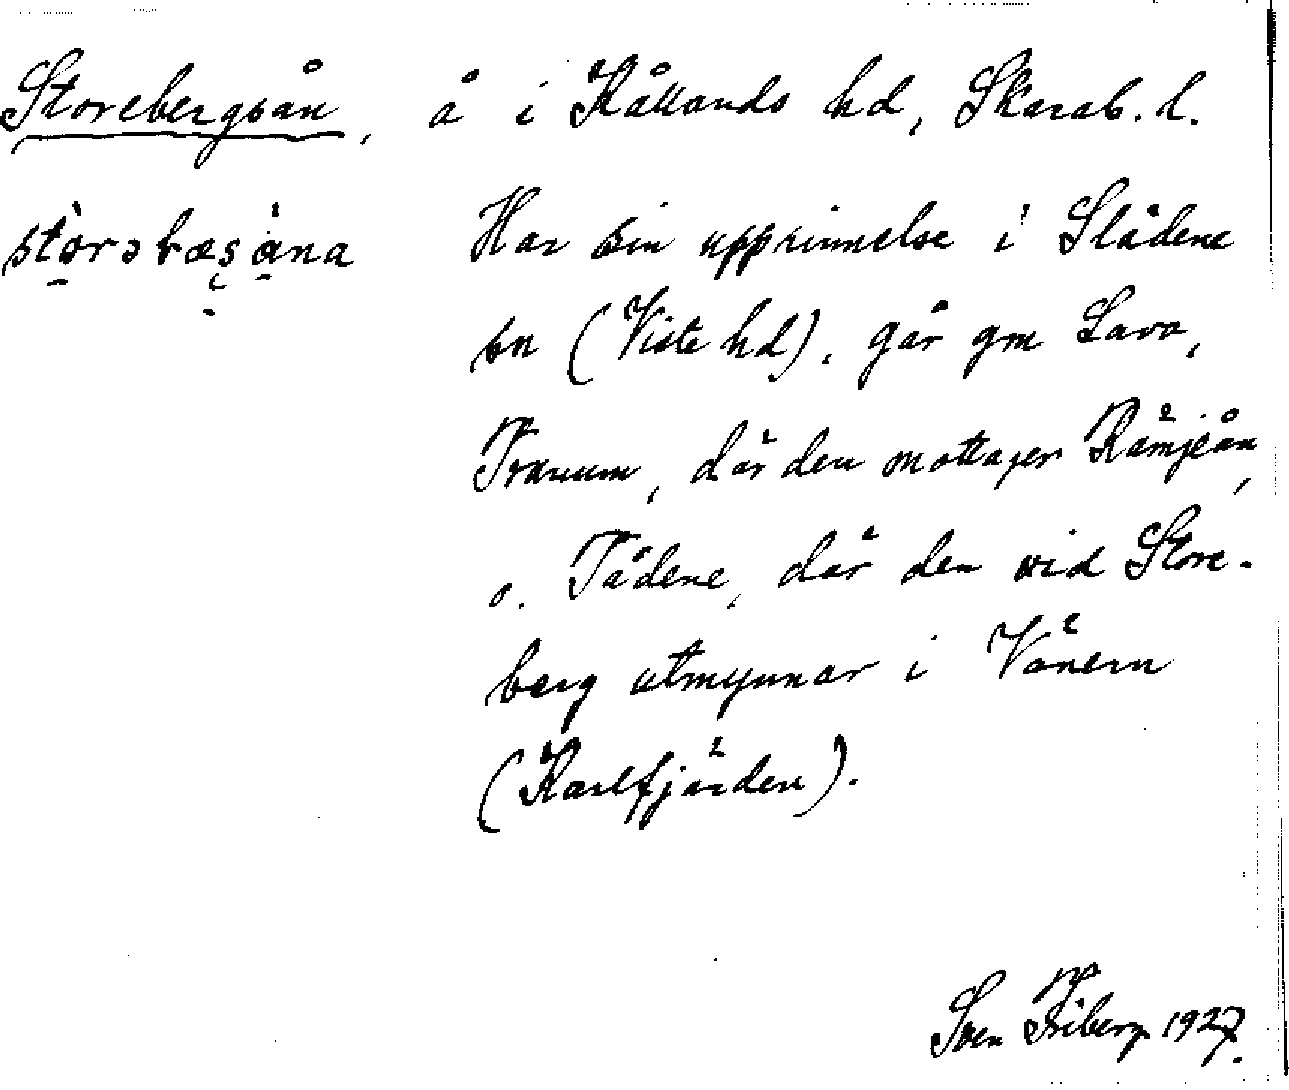 Storebergsån, å i Kållands hd, Skarab. l.
Har sin upprinnelse i Slädene
sn (Viste hd), går gm Lavа,
Tranum, där den mottager Rämjeån,
o. Tådene, där den vid Store-
berg utmynnar i Vänern
(Karlfjärden).
Sven Friberg 1927.